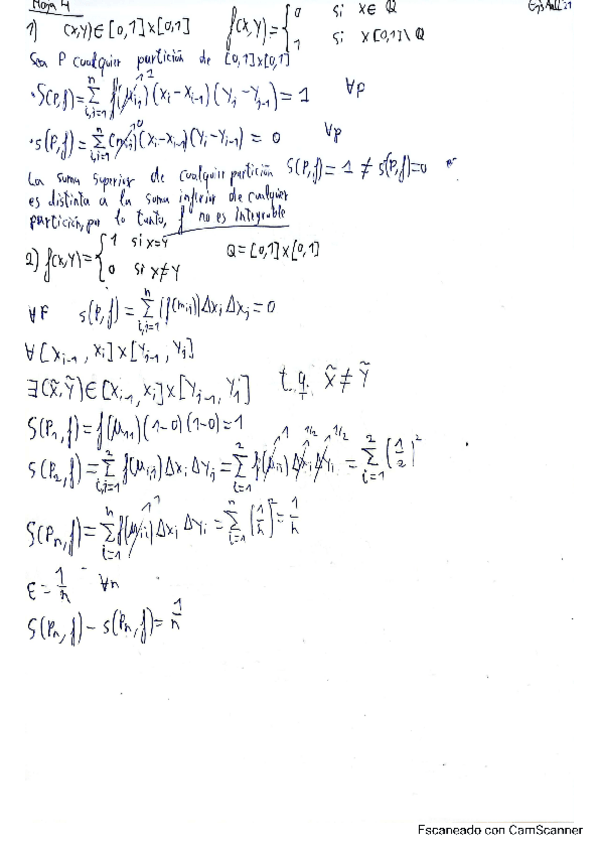 Hoja 4
1) (x,y)∈[0,1]×[0,1] f(x,y)={0 si x∈Q
1 si x[0,1]\Q
Sea P cualquier partición de [0,1]×[0,1]
·S(P,f)=∑ⁿᵢ,ⱼ₌₁ f(μᵢⱼ)¹(xᵢ-xᵢ₋₁)(Yⱼ-Yⱼ₋₁)=1 ∀p
·s(P,f)=∑ⁿᵢ,ⱼ₌₁(mᵢⱼ)⁰(xᵢ-xᵢ₋₁)(Yᵢ-Yᵢ₋₁)=0 ∀p
La suma superior de cualquier partición S(P,f)=1≠s(P,f)=0
es distinta a la suma inferior de cualquier
partición, por lo tanto, f no es integrable
2) f(x,y)={1 si x=Y
0 si x≠Y Q=[0,1]×[0,1]
∀P s(P,f)=∑ⁿᵢ,ⱼ₌₁(f(mᵢⱼ))Δxᵢ Δxⱼ=0
∀[xᵢ₋₁, xᵢ]×[Yⱼ₋₁, Yⱼ]
∃(x̃,Ỹ)∈[xᵢ₋₁, xᵢ]×[Yⱼ₋₁, Yⱼ] t.q. x̃≠Ỹ
S(P₁,f)=f(μ₁₁)(1-0)(1-0)=1
S(P₂,f)=∑²ᵢ,ⱼ₌₁ f(μᵢ,ⱼ)Δxᵢ Δyⱼ=∑²ᵢ₌₁ f(μᵢᵢ)¹ Δxᵢ¹/² Δyᵢ¹/²=∑²ᵢ₌₁(1/2)²
S(Pₙ,f)=∑ⁿᵢ₌₁ f(μᵢᵢ)¹Δxᵢ ΔYᵢ=∑ⁿᵢ₌₁(1/n)²=1/n
ε=1/n ∀n
S(Pₙ,f)-s(Pₙ,f)=1/n
Escaneado con CamScanner